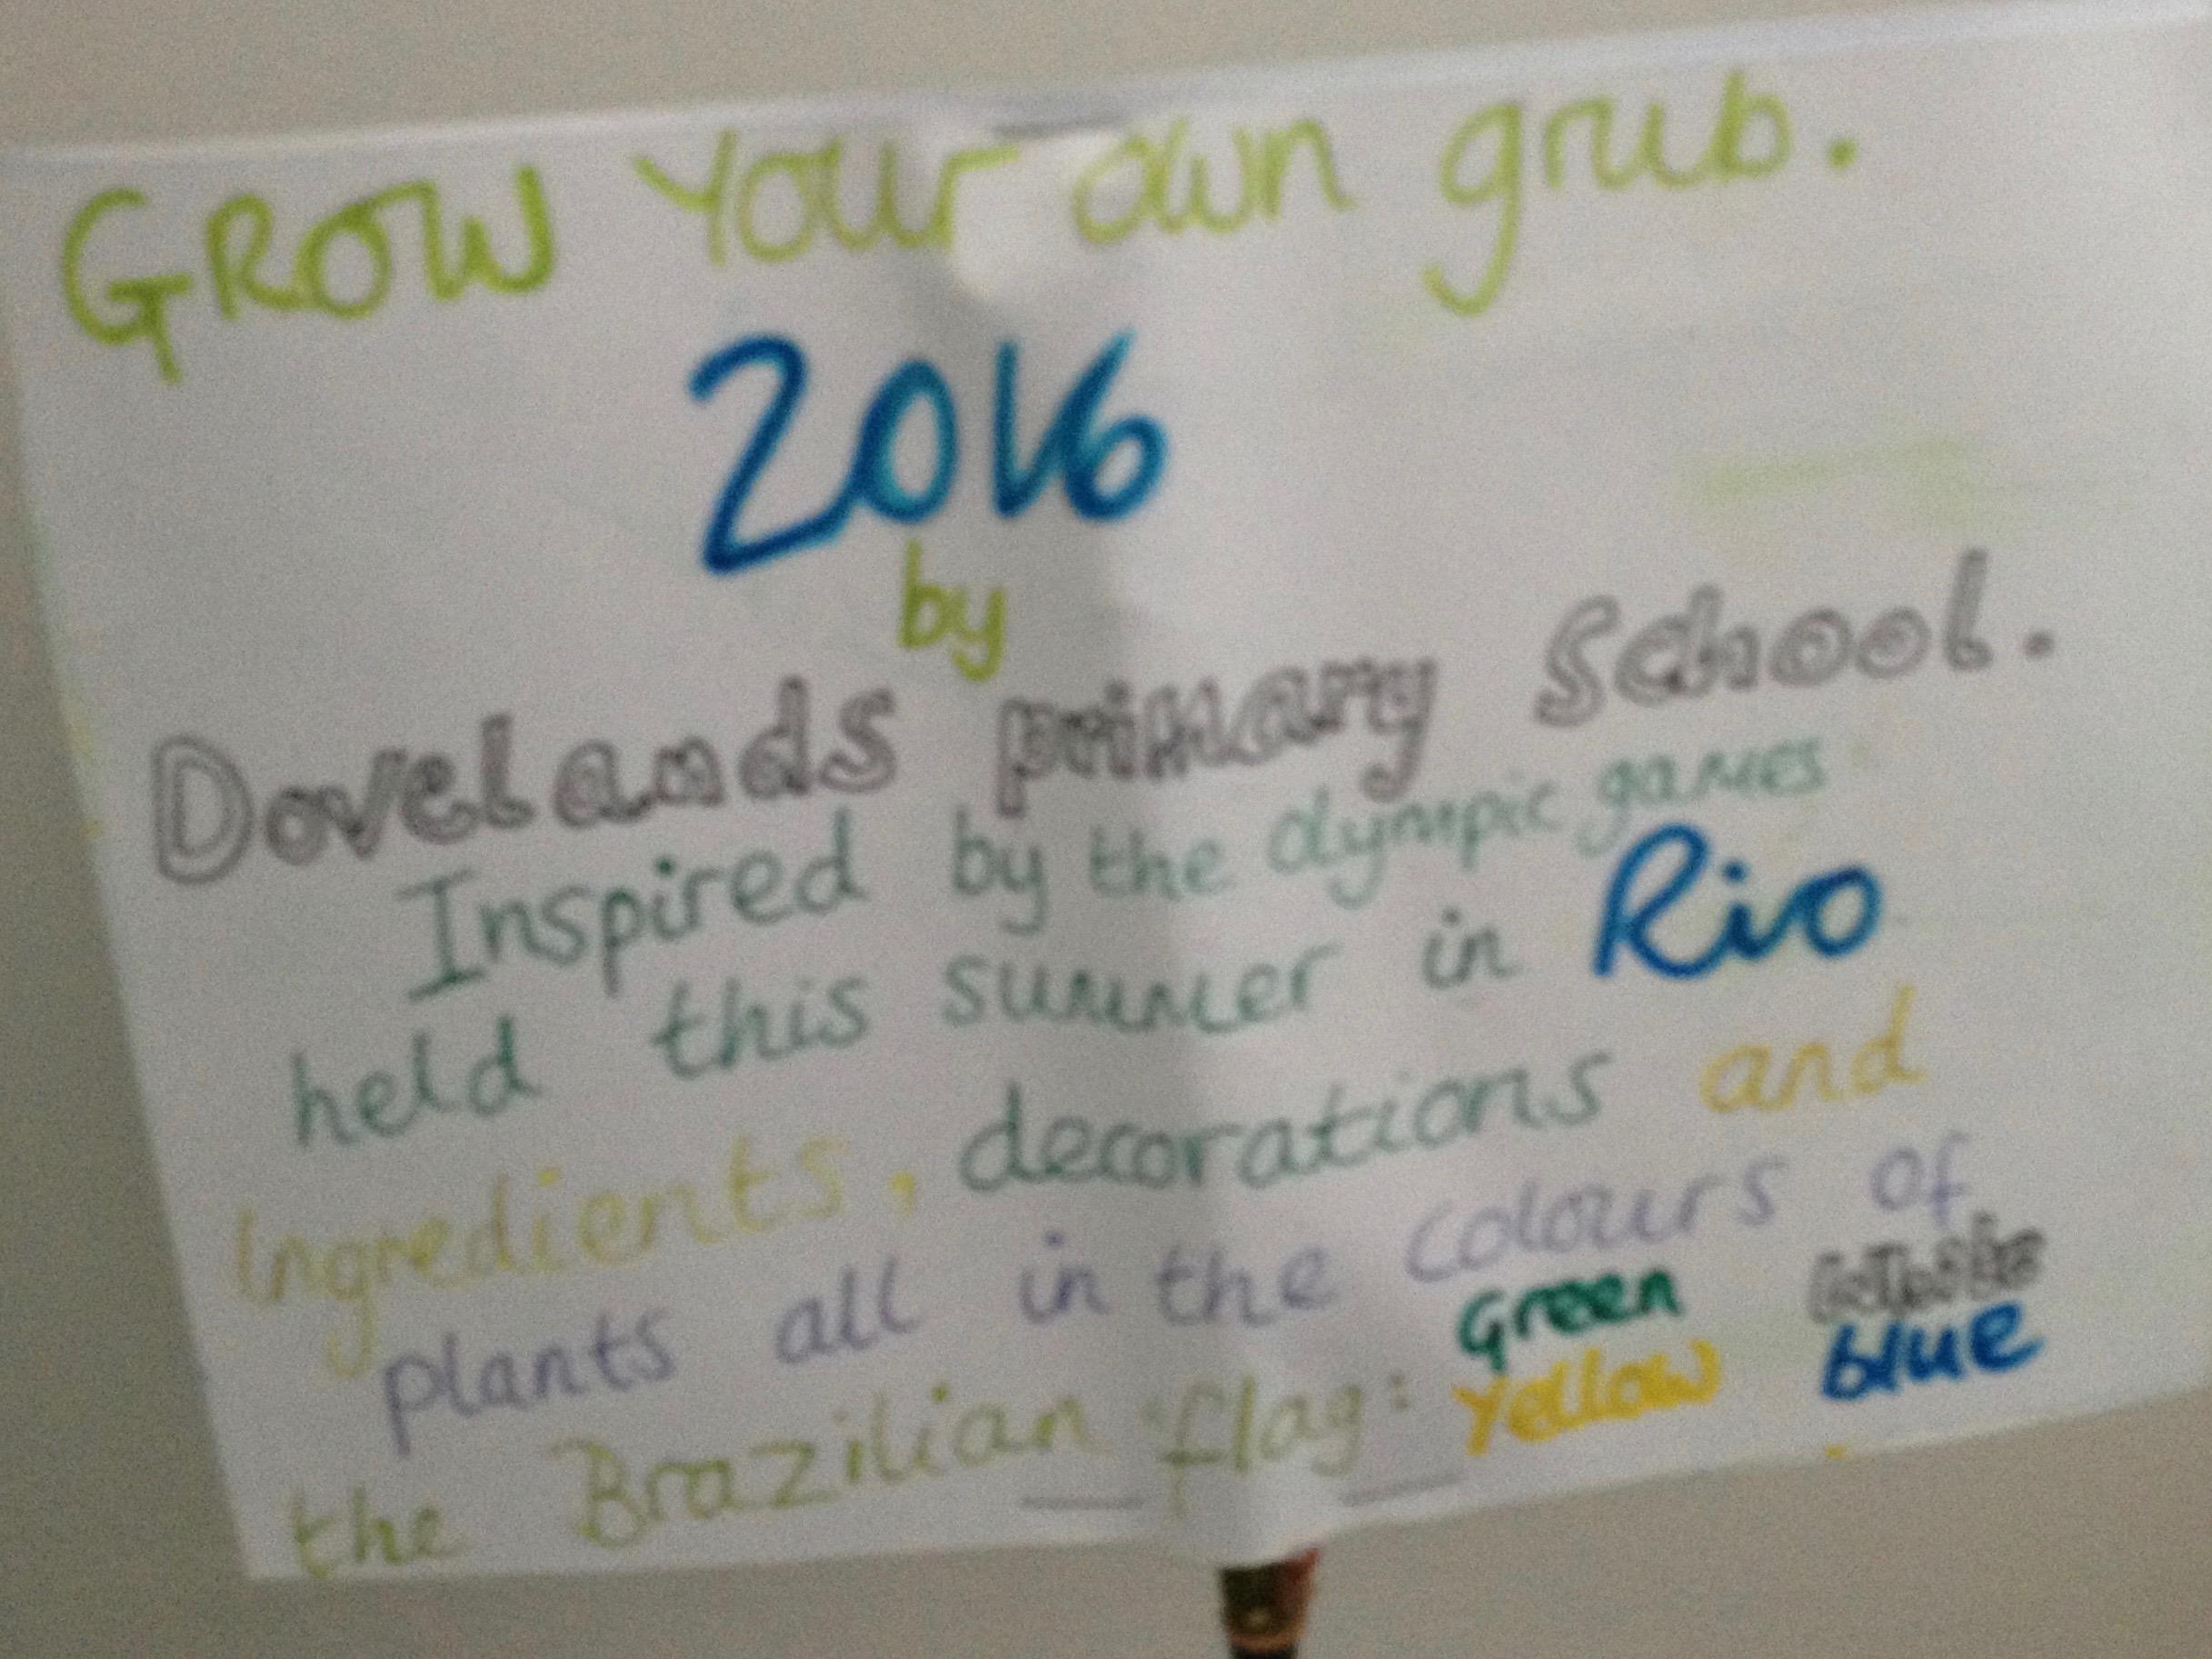 GROW Your own grub.
2016
by
Dovelands primary School.
Inspired by the olympic games
held this summer in Rio
Ingredients, decorations and
plants all in the colours of
the Brazilian flag: Green White
Yellow blue